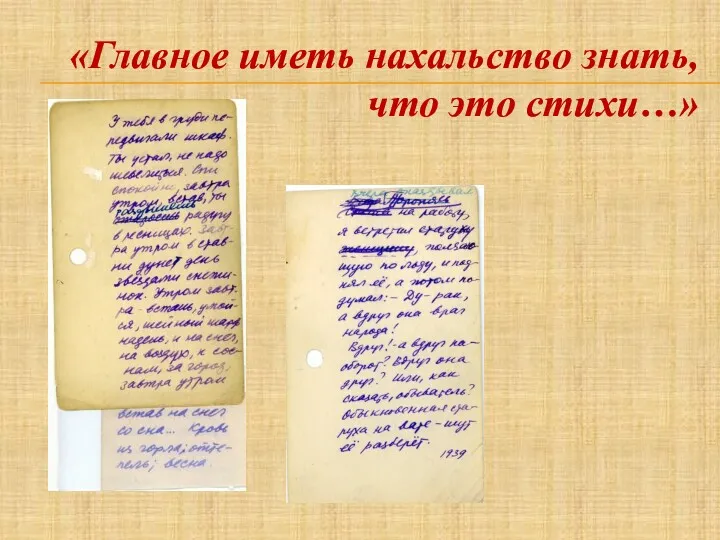 «Главное иметь нахальство знать,
что это стихи…»
У тебя в груди пе-
редвигали шкаф.
Ты устал, не надо
шевелиться. Спи
спокойно, завтра
утром, встав, ты
радугу
в ресницах. Завт-
ра утром в став-
ни дунет день
звёздами снежи-
нок. Утром завт-
ра - встань, умой-
ся, шейный шарф
надень, и на снег,
на воздух, к сос-
нам, за город,
завтра утром
встав на снег
со сна... Кровь
из горла; отте-
пель; весна.
Вчера опаздывал
Торопясь
на работу,
я встретил старуху
женщину, ползаю-
щую по льду, и под-
нял её, а потом по-
думал: - Ду-рак,
а вдруг она враг
народа!
Вдруг! - а вдруг на-
оборот? Вдруг она
друг? Или, как
сказать, обыватель?
Обыкновенная ста-
руха на вате - шут
её разберёт.
1939